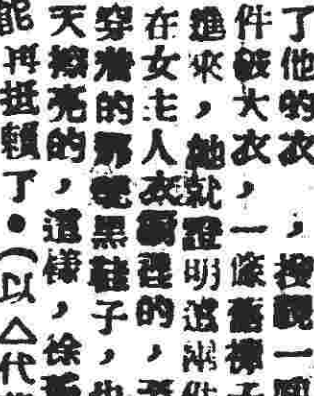 了他的衣，搜視一
件破大衣，一條舊褲子
進來，她就證明這兩件
在女主人衣櫥裡的，
穿着的那雙黑鞋子，也
天擦亮的，這樣，徐
能再抵賴了。（以△代